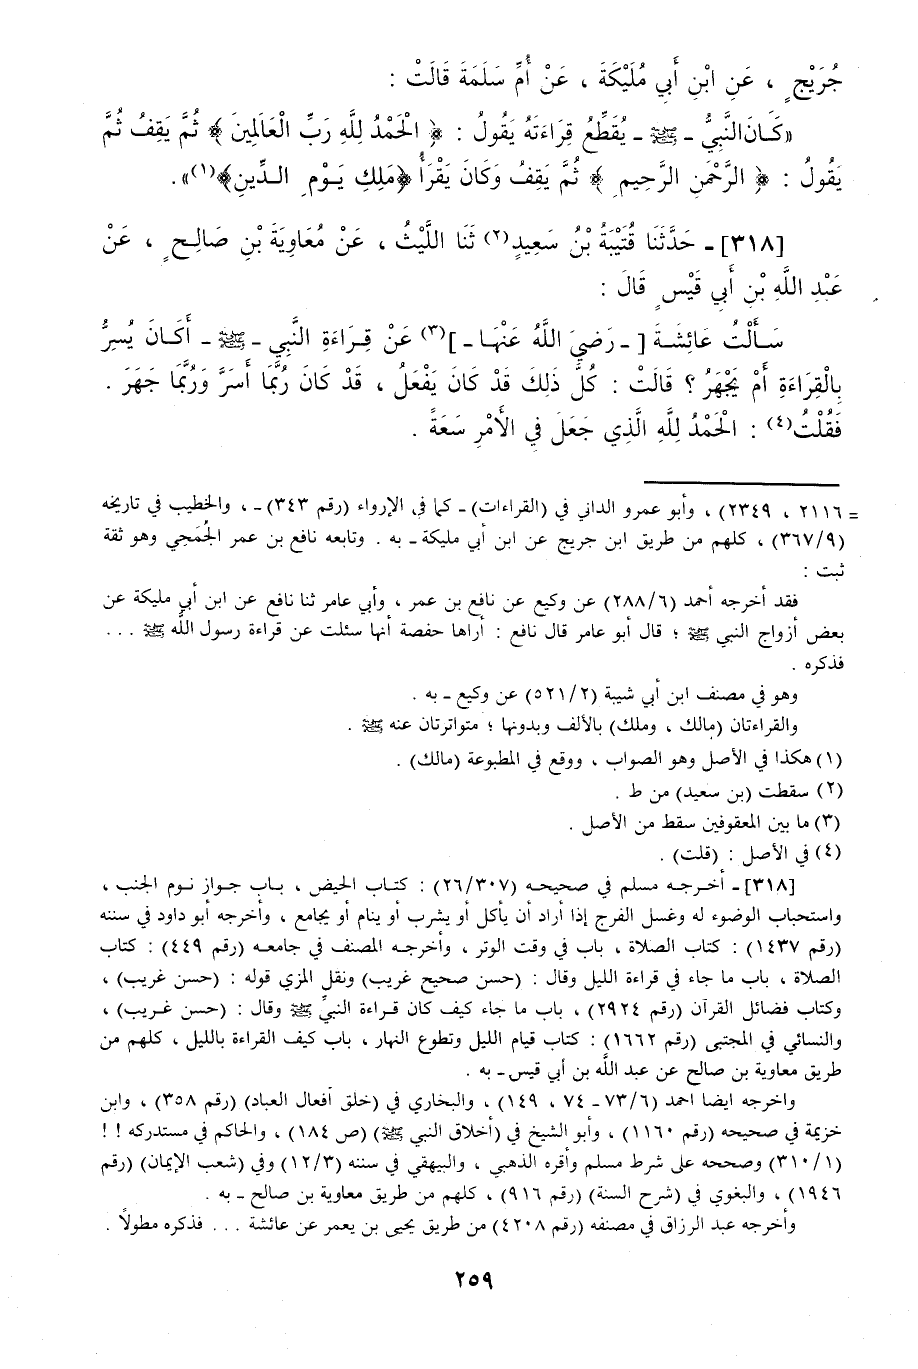 جُرَيْجٍ ، عَنِ ابْنِ أَبِي مُلَيْكَةَ ، عَنْ أُمِّ سَلَمَةَ قَالَتْ :
«كَانَ النَّبِيُّ ـ ﷺ ـ يُقَطِّعُ قِرَاءَتَهُ يَقُولُ : ﴿ الْحَمْدُ لِلَّهِ رَبِّ الْعَالَمِينَ ﴾ ثُمَّ يَقِفُ ثُمَّ
يَقُولُ : ﴿ الرَّحْمٰنِ الرَّحِيمِ ﴾ ثُمَّ يَقِفُ وَكَانَ يَقْرَأُ ﴿مَلِكِ يَوْمِ الدِّينِ﴾(١)».
[٣١٨] ـ حَدَّثَنَا قُتَيْبَةُ بْنُ سَعِيدٍ(٢) ثَنَا اللَّيْثُ ، عَنْ مُعَاوِيَةَ بْنِ صَالِحٍ ، عَنْ
عَبْدِ اللَّهِ بْنِ أَبِي قَيْسٍ قَالَ :
سَأَلْتُ عَائِشَةَ [ ـ رَضِيَ اللَّهُ عَنْهَا ـ ](٣) عَنْ قِرَاءَةِ النَّبِي ـ ﷺ ـ أَكَانَ يُسِرُّ
بِالْقِرَاءَةِ أَمْ يَجْهَرُ ؟ قَالَتْ : كُلُّ ذَلِكَ قَدْ كَانَ يَفْعَلُ ، قَدْ كَانَ رُبَّمَا أَسَرَّ وَرُبَّمَا جَهَرَ .
فَقُلْتُ(٤) : الْحَمْدُ لِلَّهِ الَّذِي جَعَلَ فِي الأَمْرِ سَعَةً .
= ٢١١٦ ، ٢٣٤٩) ، وأبو عمرو الداني في (القراءات) ـ كما في الإرواء (رقم ٣٤٣) ـ ، والخطيب في تاريخه
(٣٦٧/٩) ، كلهم من طريق ابن جريج عن ابن أبي مليكة ـ به . وتابعه نافع بن عمر الجُمَحي وهو ثقة
ثبت :
فقد أخرجه أحمد (٢٨٨/٦) عن وكيع عن نافع بن عمر ، وأبي عامر ثنا نافع عن ابن أبي مليكة عن
بعض أزواج النبي ﷺ ؛ قال أبو عامر قال نافع : أراها حفصة أنها سئلت عن قراءة رسول الله ﷺ ...
فذكره .
وهو في مصنف ابن أبي شيبة (٥٢١/٢) عن وكيع ـ به .
والقراءتان (مالك ، وملك) بالألف وبدونها ؛ متواترتان عنه ﷺ .
(١) هكذا في الأصل وهو الصواب ، ووقع في المطبوعة (مالك) .
(٢) سقطت (بن سعيد) من ط .
(٣) ما بين المعقوفين سقط من الأصل .
(٤) في الأصل : (قلت) .
[٣١٨] ـ أخرجه مسلم في صحيحه (٢٦/٣٠٧) : كتاب الحيض ، باب جواز نوم الجنب ،
واستحباب الوضوء له وغسل الفرج إذا أراد أن يأكل أو يشرب أو ينام أو يجامع ، وأخرجه أبو داود في سننه
(رقم ١٤٣٧) : كتاب الصلاة ، باب في وقت الوتر ، وأخرجه المصنف في جامعه (رقم ٤٤٩) : كتاب
الصلاة ، باب ما جاء في قراءة الليل وقال : (حسن صحيح غريب) ونقل المزي قوله : (حسن غريب) ،
وكتاب فضائل القرآن (رقم ٢٩٢٤) ، باب ما جاء كيف كان قراءة النبيِّ ﷺ وقال : (حسن غريب) ،
والنسائي في المجتبى (رقم ١٦٦٢) : كتاب قيام الليل وتطوع النهار ، باب كيف القراءة بالليل ، كلهم من
طريق معاوية بن صالح عن عبد الله بن أبي قيس ـ به .
واخرجه ايضا احمد (٧٣/٦ ـ ٧٤ ، ١٤٩) ، والبخاري في (خلق أفعال العباد) (رقم ٣٥٨) ، وابن
خزيمة في صحيحه (رقم ١١٦٠) ، وأبو الشيخ في (أخلاق النبي ﷺ) (ص ١٨٤) ، والحاكم في مستدركه ! !
(٣١٠/١) وصححه على شرط مسلم وأقره الذهبي ، والبيهقي في سننه (١٢/٣) وفي (شعب الإيمان) (رقم
١٩٤٦) ، والبغوي في (شرح السنة) (رقم ٩١٦) ، كلهم من طريق معاوية بن صالح ـ به .
وأخرجه عبد الرزاق في مصنفه (رقم ٤٢٠٨) من طريق يحيى بن يعمر عن عائشة ... فذكره مطولاً .
٢٥٩